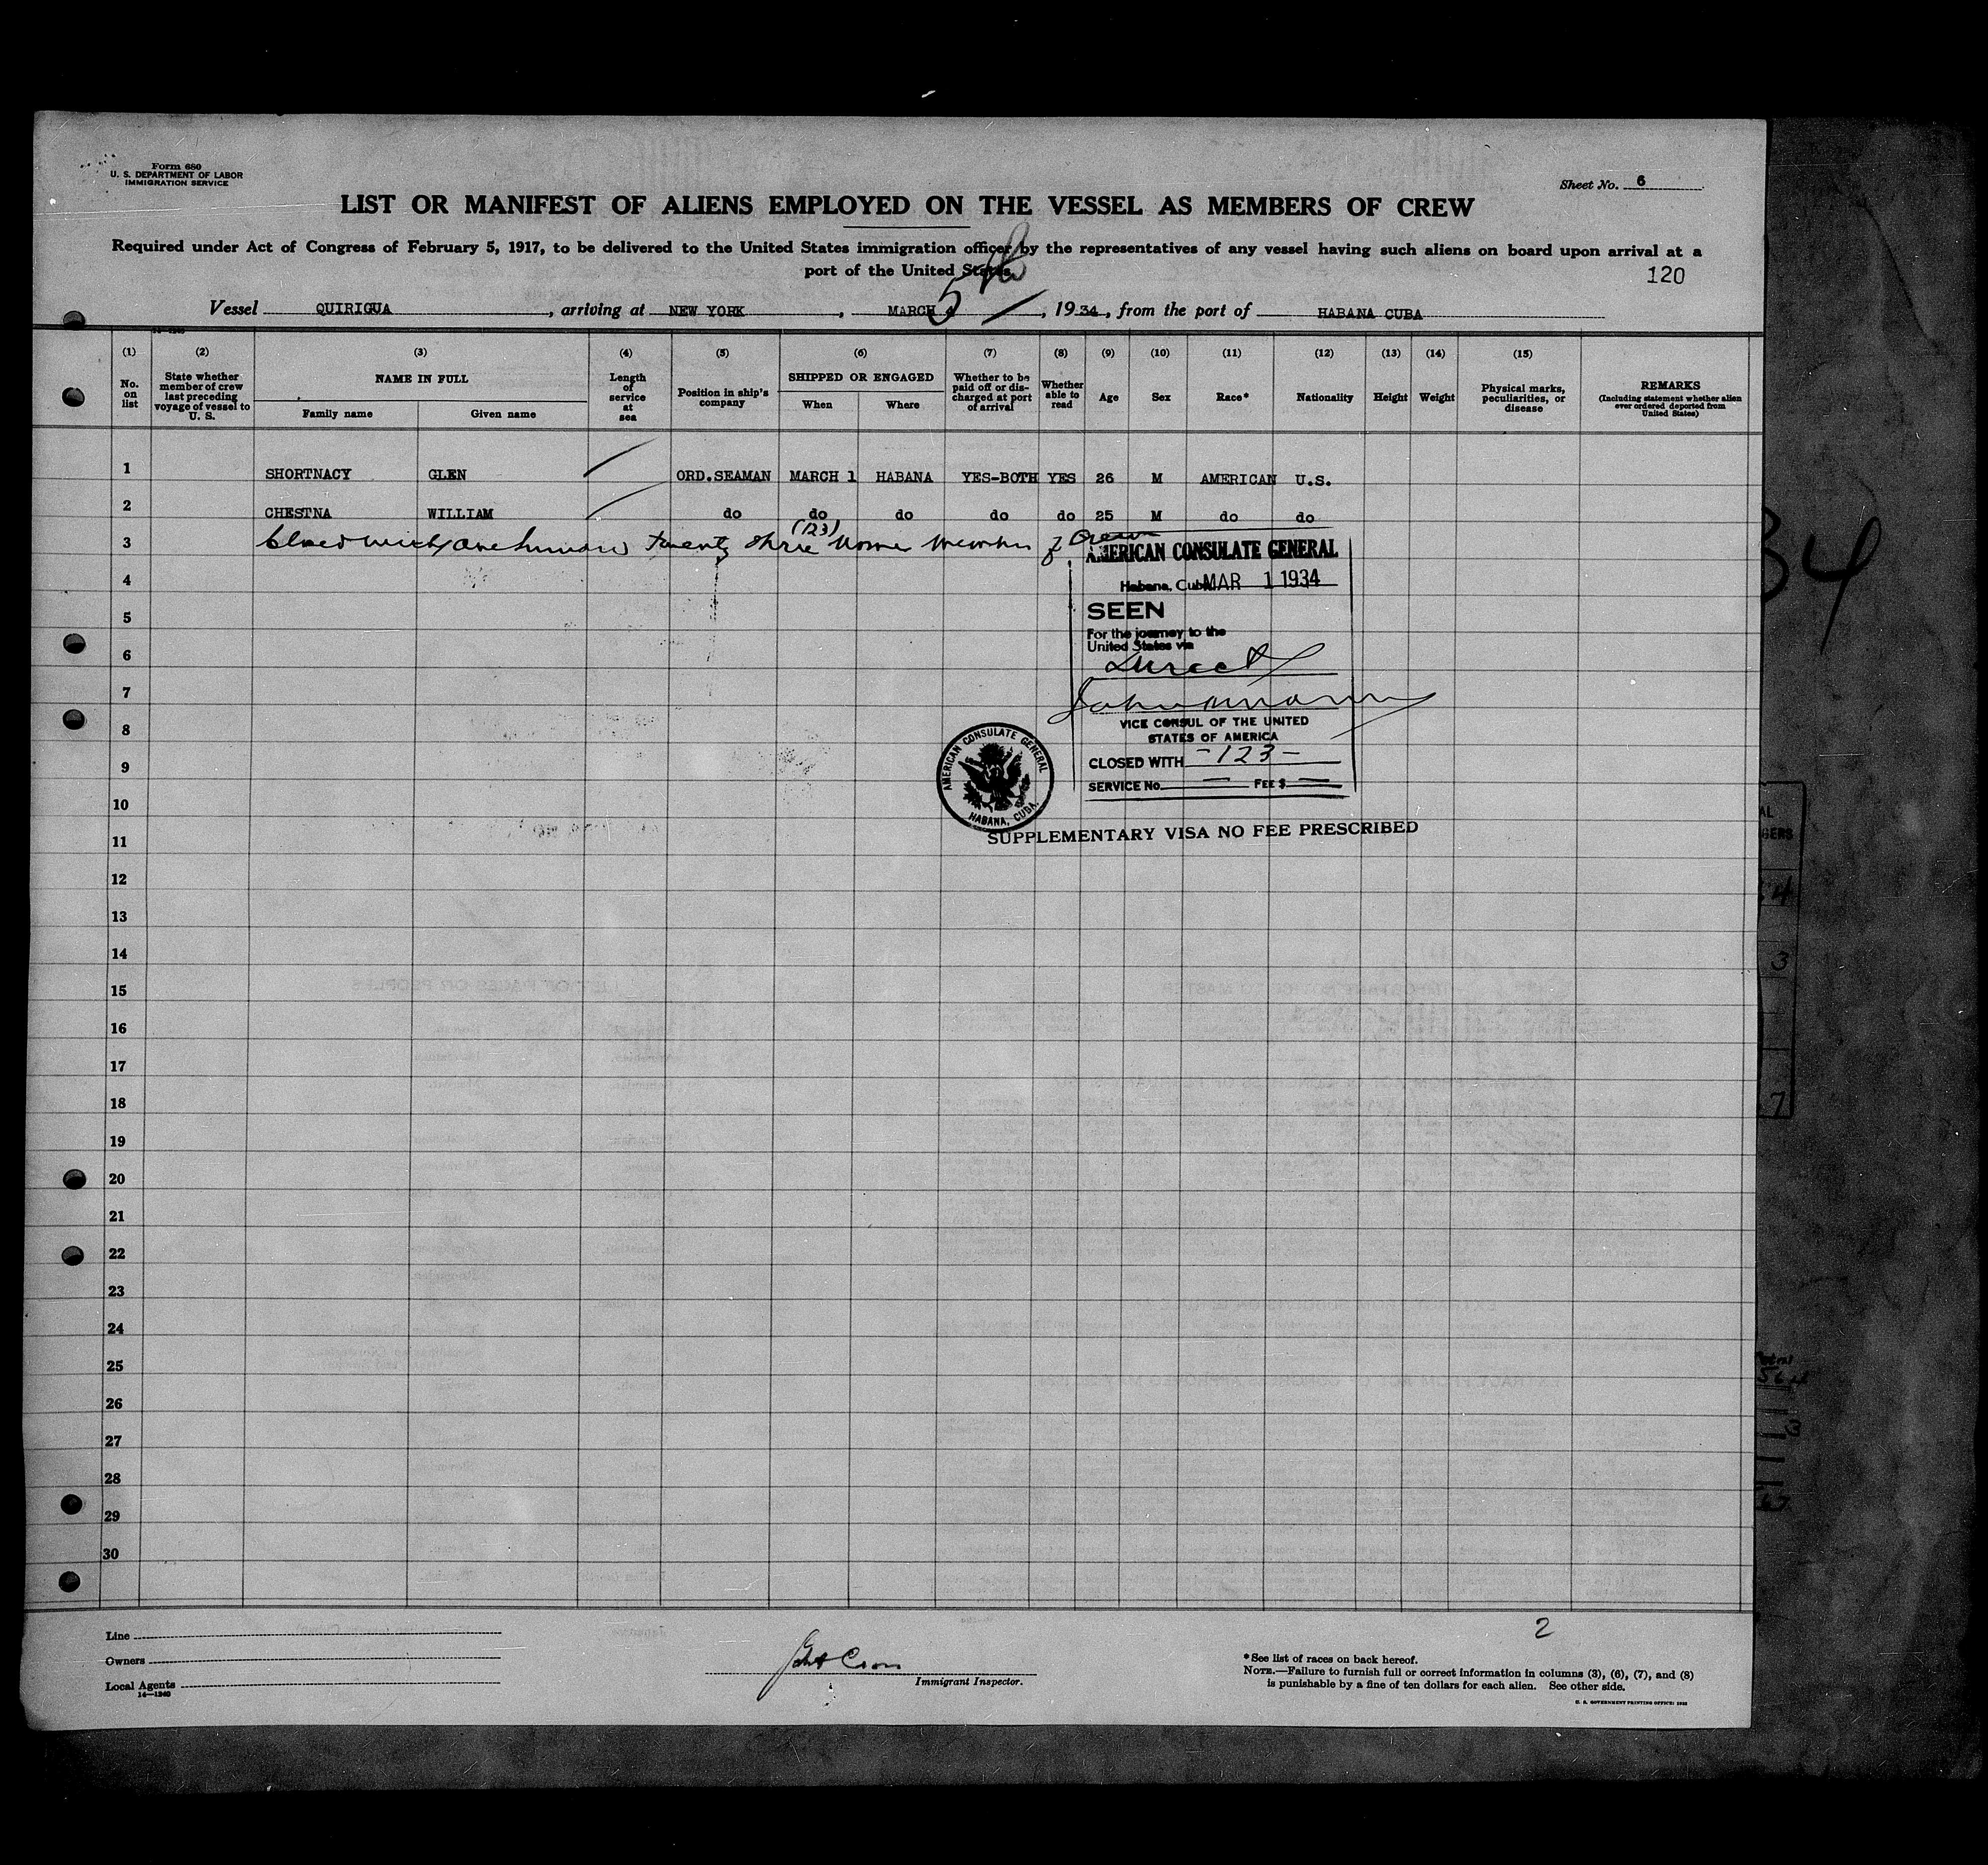 Form 680
U. S. DEPARTMENT OF LABOR
IMMIGRATION SERVICE
Sheet No. 6
LIST OR MANIFEST OF ALIENS EMPLOYED ON THE VESSEL AS MEMBERS OF CREW
Required under Act of Congress of February 5, 1917, to be delivered to the United States immigration officer by the representatives of any vessel having such aliens on board upon arrival at a
port of the United States
120
Vessel QUIRIGUA, arriving at NEW YORK, MARCH 5th, 1934, from the port of HABANA CUBA
14—1240
(1) (2) (3) (4) (5) (6) (7) (8) (9) (10) (11) (12) (13) (14) (15)
No. on list
State whether member of crew last preceding voyage of vessel to U. S.
NAME IN FULL
Family name Given name
Length of service at sea
Position in ship's company
SHIPPED OR ENGAGED
When Where
Whether to be paid off or discharged at port of arrival
Whether able to read
Age Sex Race* Nationality Height Weight
Physical marks, peculiarities, or disease
REMARKS
(Including statement whether alien ever ordered deported from United States)
1 SHORTNACY GLEN ORD.SEAMAN MARCH 1 HABANA YES-BOTH YES 26 M AMERICAN U.S.
2 CHESTNA WILLIAM do do do do do 25 M do do
3 Closed with one hundred twenty three (123) names members of crew
AMERICAN CONSULATE GENERAL
4
Habana, Cuba MAR 1 1934
5
SEEN
For the journey to the
United States via
6
Direct
7
VICE CONSUL OF THE UNITED
STATES OF AMERICA
8
CLOSED WITH -123-
9
SERVICE No. — FEE $ —
AMERICAN CONSULATE GENERAL
HABANA, CUBA.
10
SUPPLEMENTARY VISA NO FEE PRESCRIBED
11
12
13
14
15
16
17
18
19
20
21
22
23
24
25
26
27
28
29
30
2
Line
Owners
Local Agents
14—1240
Immigrant Inspector.
*See list of races on back hereof.
NOTE.—Failure to furnish full or correct information in columns (3), (6), (7), and (8)
is punishable by a fine of ten dollars for each alien. See other side.
U. S. GOVERNMENT PRINTING OFFICE: 1932
34